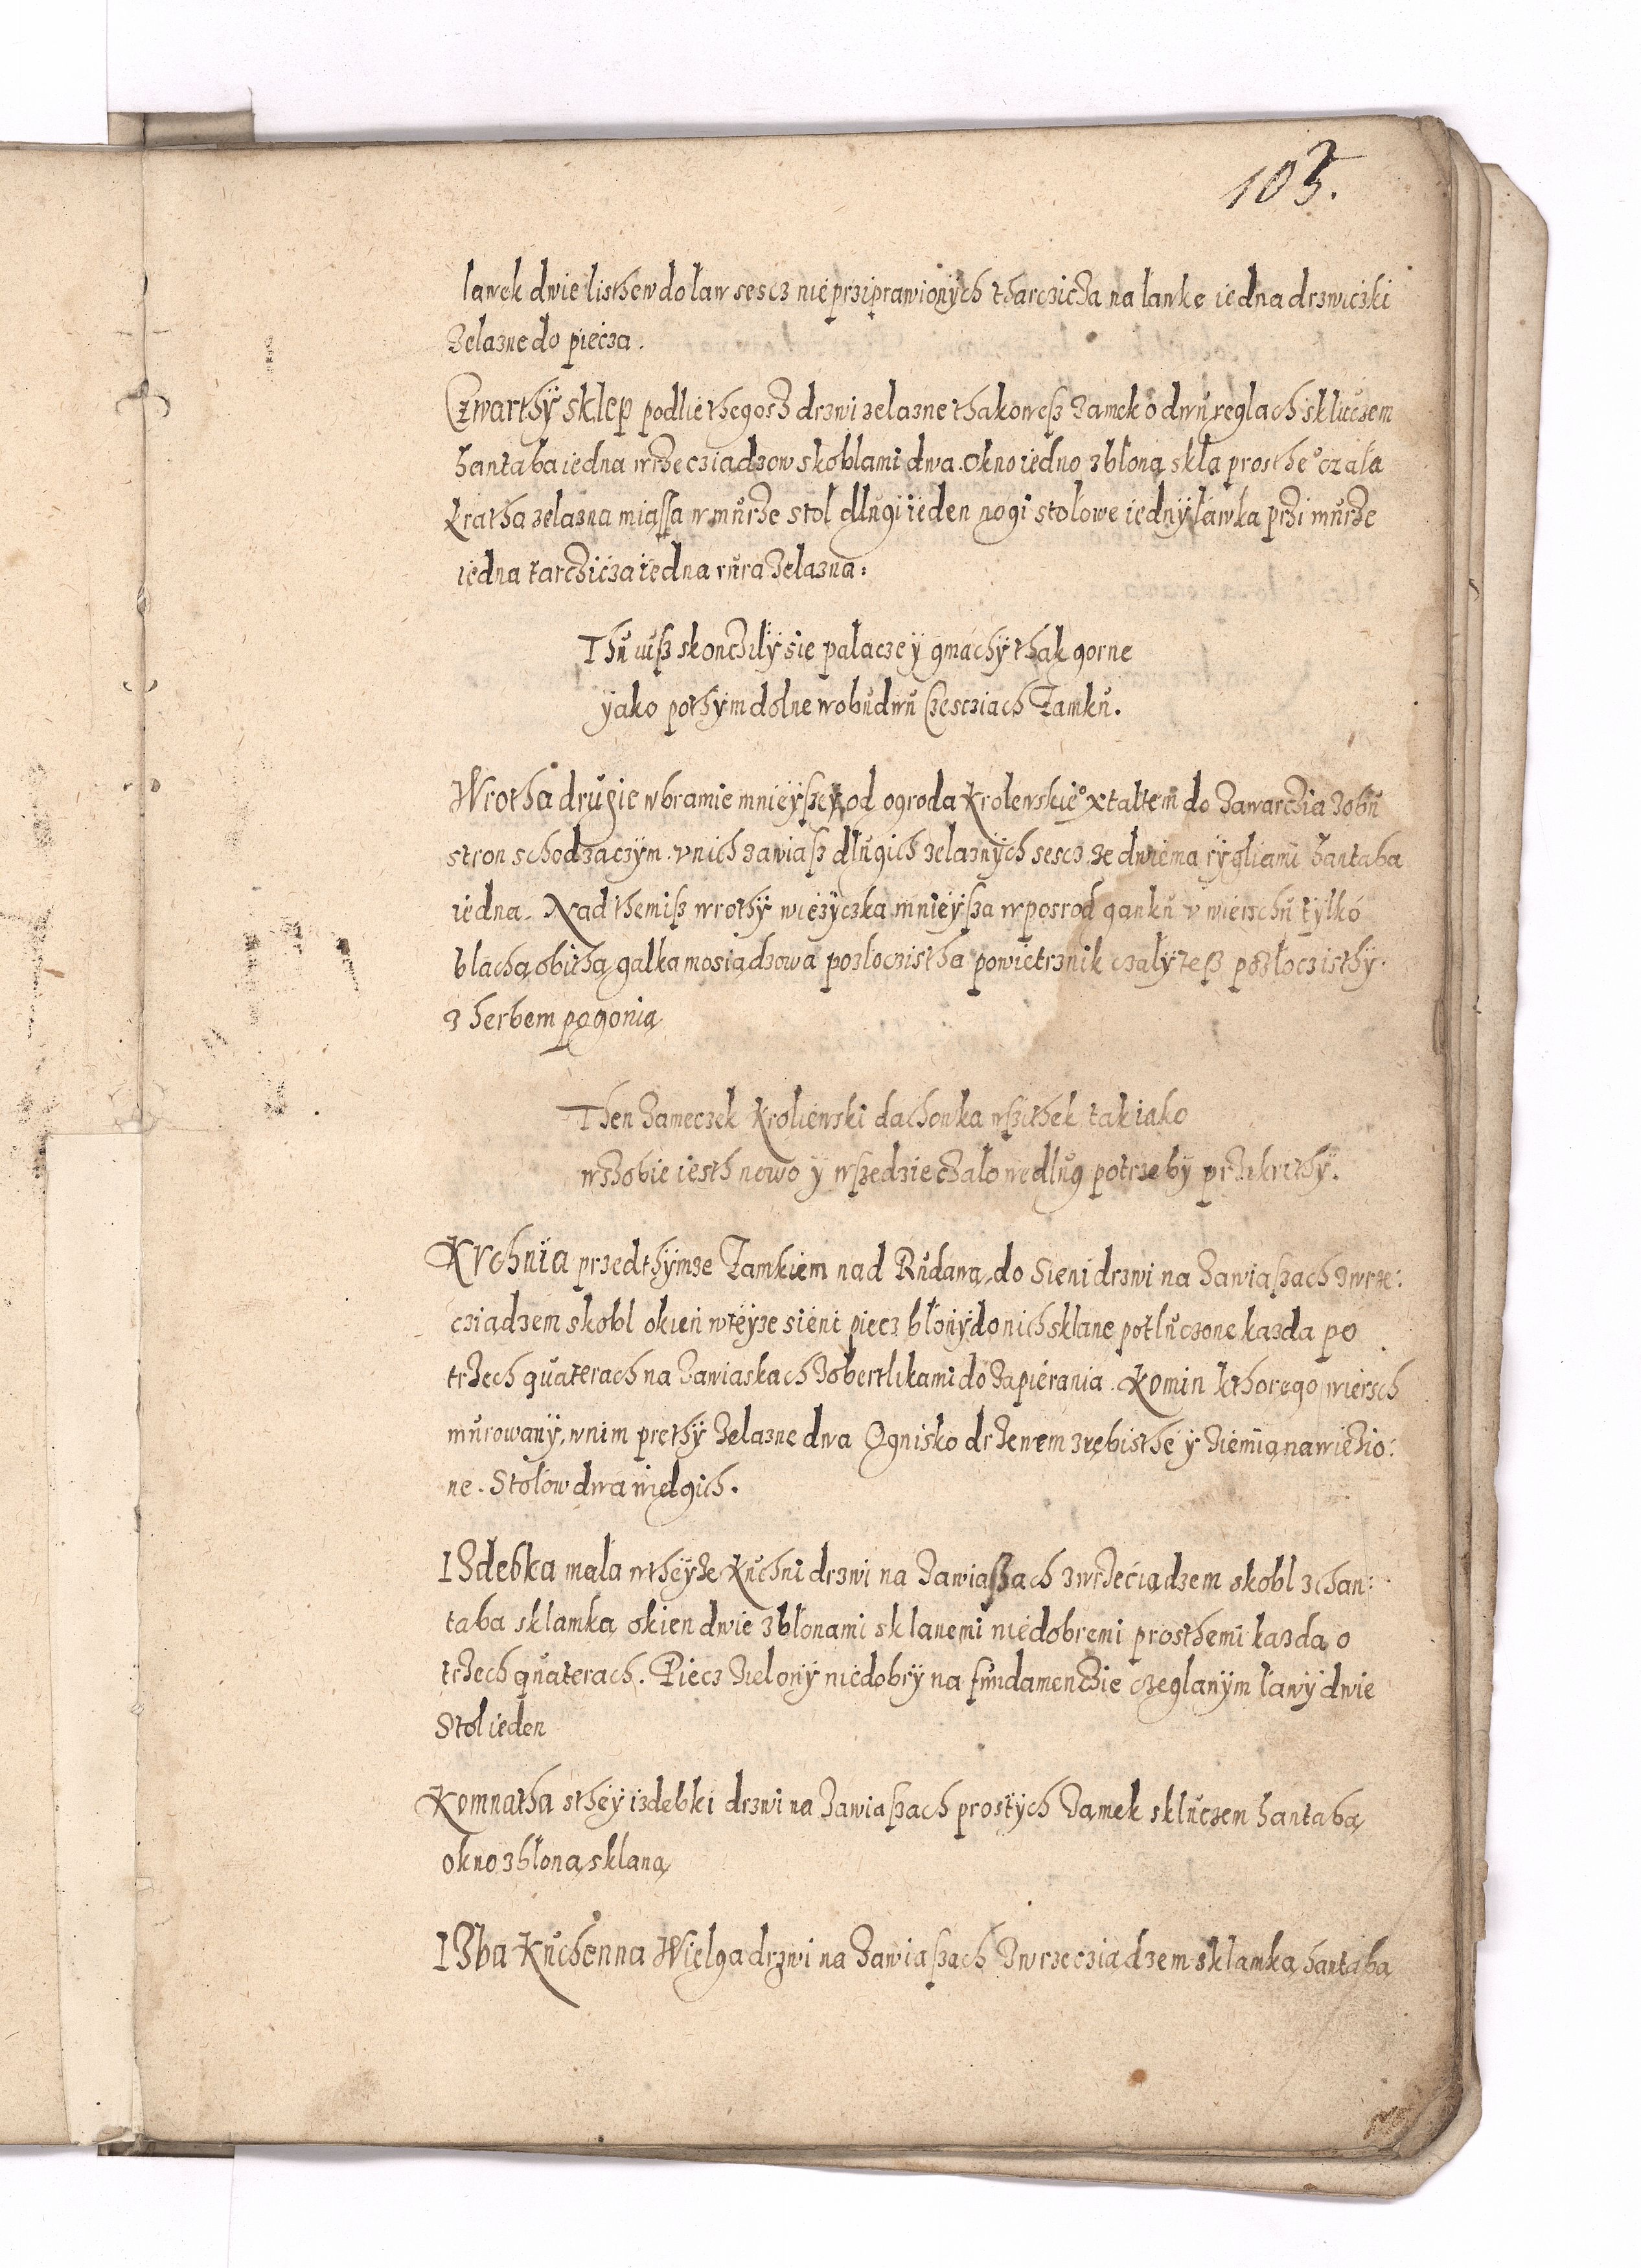 103.
lawek dwie listhew do law sescz nieprziprawionÿch tharczicza na lawke iedna drzwiczki
żelazne do piecza.
Czwarthÿ sklep podlie thegosz drzwi zelazne thakowesz zamek o dwu reglach skluczem
hantaba iedna wrzecziadzow skoblami dwa. Okno iedno z bloną skla prosthe° czala
kratha zelazna miąssa w murze stol dlugi ieden nogi stolowe iednÿ ławka przi murze
iedna tarcżicza iedna rura żelazna:
Thu iusz skonczilÿ sie palacze ÿ gmachÿ thak gorne
ÿako pothÿm dolne w obudwu czescziach Zamku.
Wrotha drugie w bramie mnieÿszeÿ od ogroda Krolewskie° xtaltem do zawarczia z obu
stron schodzaczÿm. v nich zawiasz dlugich zelaznÿch sescz ze dwiema rÿgliami hantaba
iedna. Nad themisz wrothÿ wieżÿczka mnieÿsza w posrod ganku v wierschu tÿlko
blachą obithą galka mosiądzowa pozloczistha powietrznik czalÿ tesz pozloczisthÿ
z herbem pogonią
Then Zameczek Kroliewski dachowka wszithek tak iako
w sżobie iesth nowo ÿ wszedzie czalo wedlug potrzebÿ przikrithÿ.
Kvchnia przed thÿmze Zamkiem nad Rudawą, do Sieni drzwi na zawiaszach z wrze:
cziadzem skobl okien w teÿze sieni piecz błonÿ do nich sklane potluczone kazda po
trzech quaterach na zawiaskach z obertlikami do zapierania. Komin kthorego wiersch
murowanÿ, w nim prethÿ żelazne dwa Ognisko drzewem zrębisthe ÿ ziemią nawiezio:
ne. Stolow dwa wielgich.
Izdebka mala w theÿże Kuchni drzwi na zawiaszach z wrzeciądzem skobl z han:
taba sklamką okien dwie z blonami sklanemi niedobremi prosthemi kazda o
trzech quaterach. Piecz zielonÿ niedobrÿ na fundamenczie czeglanÿm ławÿ dwie
Stol ieden
Komnatha s theÿ izdebki drzwi na zawiaszach prostÿch zamek skluczem hantabą
okno z błoną sklaną
Izba Kuchenna Wielga drzwi na zawiaszach z wrzecziądzem sklamką hantabą